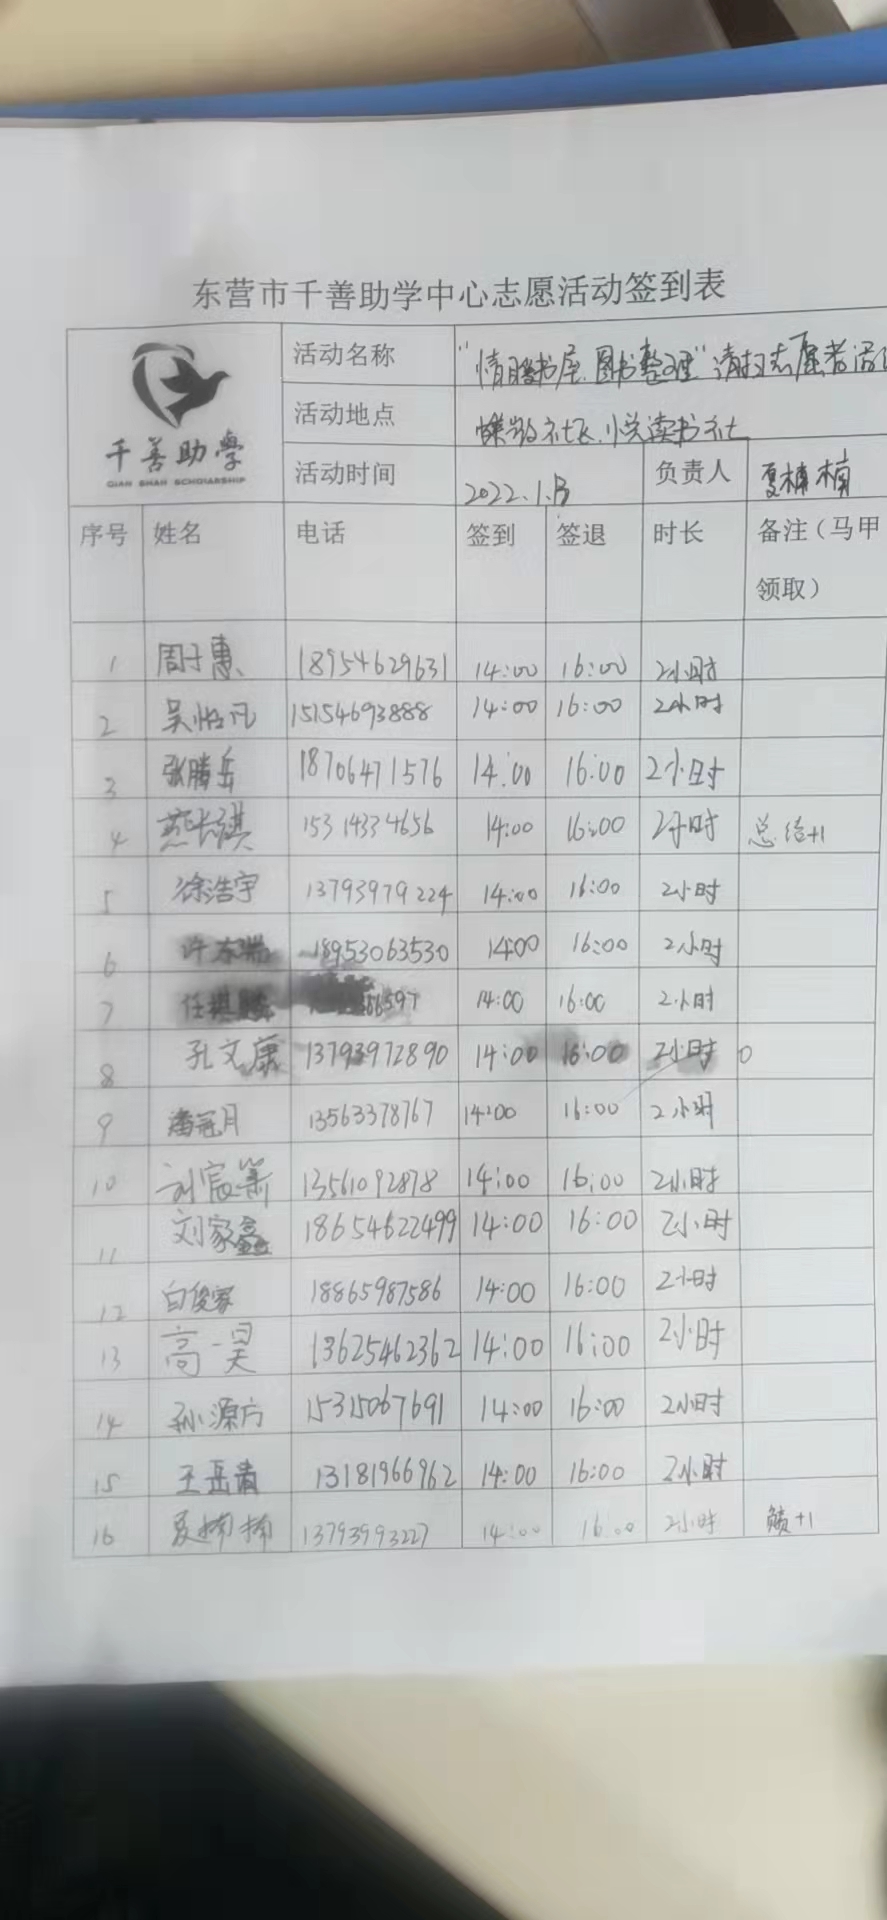 东营市千善助学中心志愿活动签到表
千善助学
QIAN SHAN SCHOIARSHIP
活动名称 图书整理"清扫志愿者活
活动地点 社区.悦读书社
活动时间 2022.1. 负责人 夏楠楠
序号 姓名 电话 签到 签退 时长 备注（马甲
领取）
1 周子惠 18954629631 14:00 16:00 2小时
2 吴怡凡 15154693888 14:00 16:00 2小时
3 张腾岳 18706471576 14:00 16:00 2小时
4 燕长祺 15314334656 14:00 16:00 2小时 总结+1
5 徐浩宇 13793979224 14:00 16:00 2小时
6 许东 18953063530 14:00 16:00 2小时
7 任棋 6597 14:00 16:00 2小时
8 孔文康 13793972890 14:00 16:00 2小时 0
9 潘冠月 13563378767 14:00 16:00 2小时
10 刘宸 13561092878 14:00 16:00 2小时
11 刘家鑫 18654622499 14:00 16:00 2小时
12 白俊家 18865987586 14:00 16:00 2小时
13 高一昊 13625462362 14:00 16:00 2小时
14 孙源方 15315067691 14:00 16:00 2小时
15 王岳 13181966962 14:00 16:00 2小时
16 夏楠楠 13793993227 14:00 16:00 2小时 +1